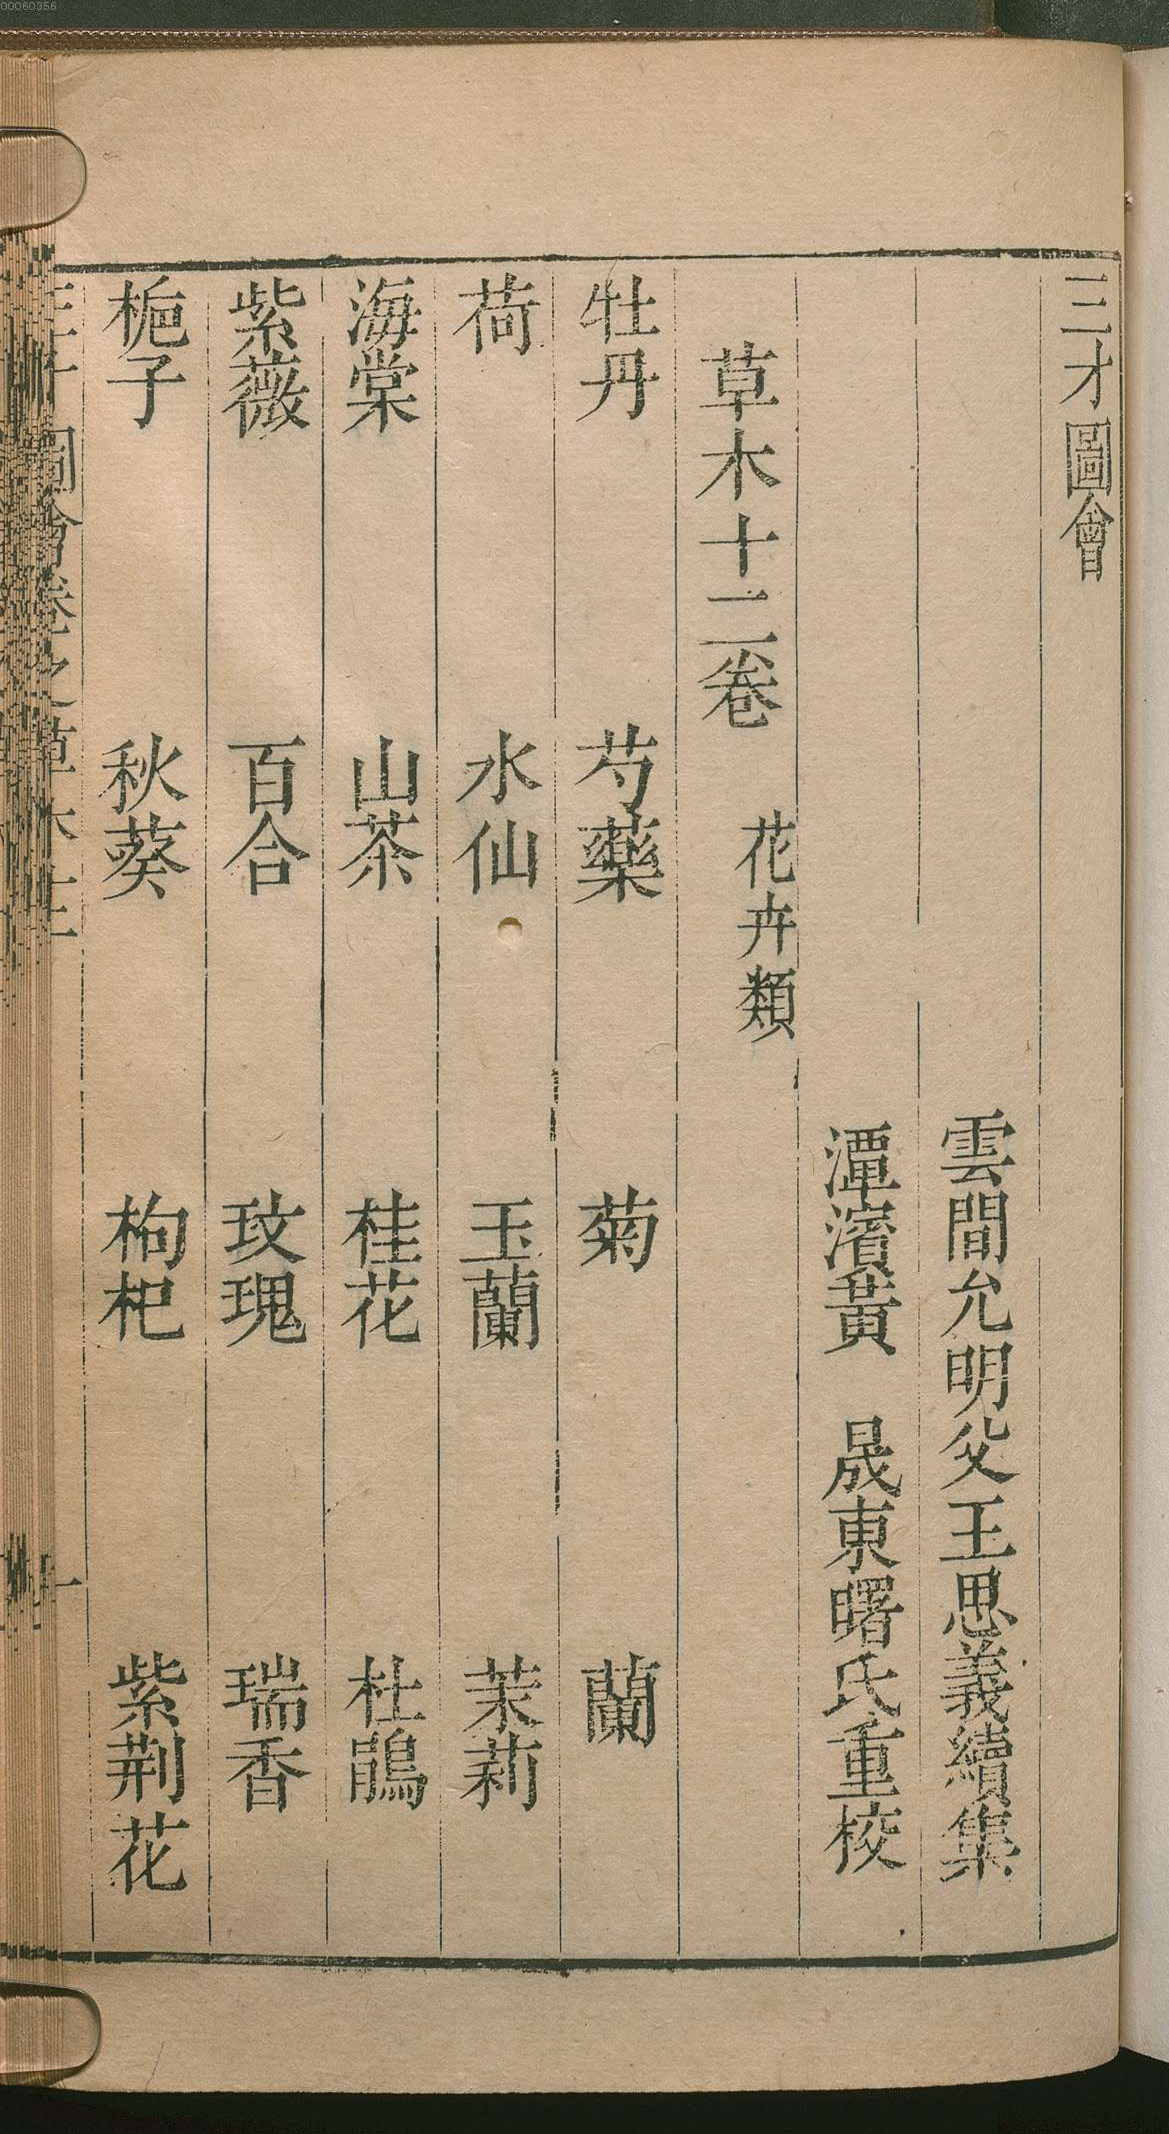 00060356
三才圖會
雲間允明父王思義續集
潭濱黃 晟東曙氏重校
草木十二卷 花卉類
牡丹 芍藥 菊 蘭
荷 水仙 玉蘭 茉莉
海棠 山茶 桂花 杜鵑
紫薇 百合 玫瑰 瑞香
梔子 秋葵 枸杞 紫荆花
圖會卷之草木十二 一